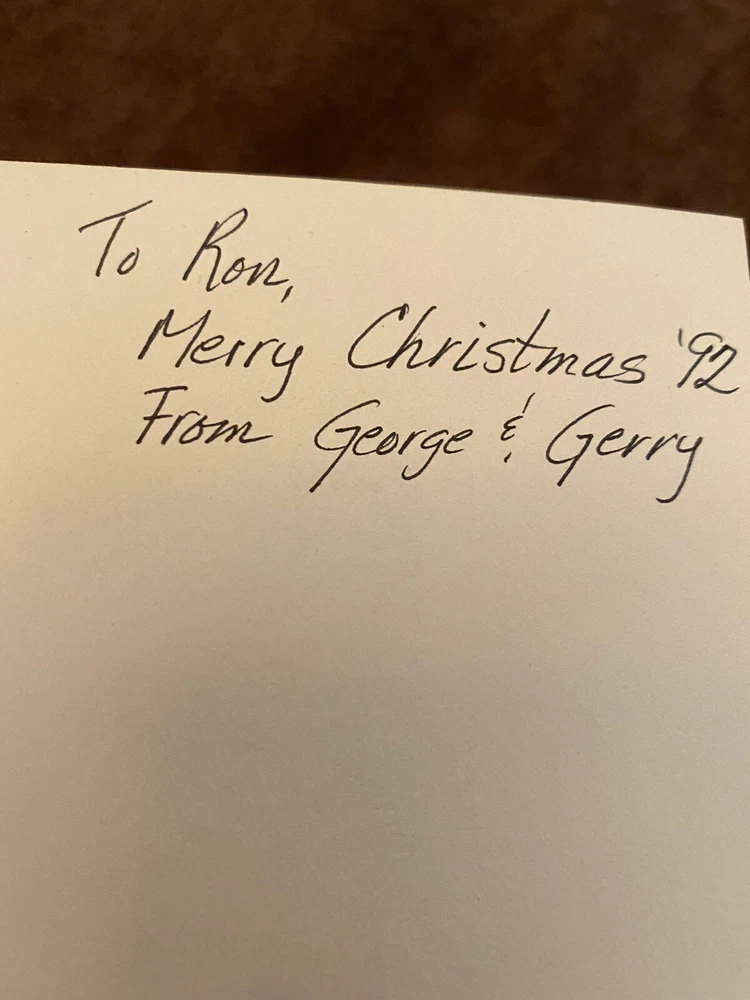 To Ron,
Merry Christmas '92
From George & Gerry